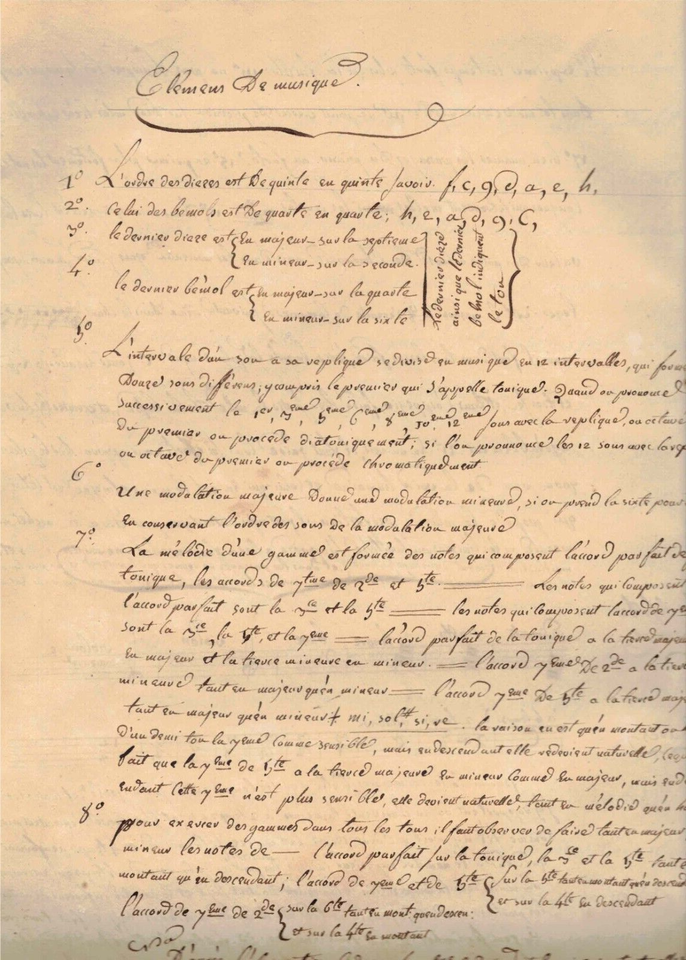 Elémens De musique.
1º L'ordre des diezes est De quinte en quinte savoir. f, c, g, d, a, e, h,
2º Celui des bemols est De quarte en quarte; h, e, a, d, g, C,
3º le dernier dieze est En majeur - sur la septieme
En mineur - sur la seconde.
4º le dernier bémol est En majeur - sur la quarte
En mineur - sur la sixte
Le dernier dieze
ainsi que le dernier
bemol indiquent
le ton
5º L'intervale d'un son a sa replique se divise en musique en 12 intervalles, qui forme
Douze sons différens; y compris le premier qui s'appelle tonique. Quand on prononce
successivement le 1er, 3eme, 5eme, 6eme, 8eme, 10eme 12eme sons avec la replique, ou octave
Du premier on procède diatoniquement; si l'on prononce les 12 sons avec la rep
ou octave du premier on procède chromatiquement
6º Une modulation majeure Donne une modulation mineure, si on prend la sixte pour
En conservant l'ordre des sons de la modulation majeure
7º La mélodie d'une gamme est formée des notes qui composent l'accord parfait de
tonique, les accords de 7eme de 2de et 5te. Les notes qui composent
l'accord parfait sont la 3ce et la 5te les notes qui composent l'accord de 7e
sont la 3ce, la 5te, et la 7eme l'accord parfait de la tonique a la tierce majeu
En majeur et la tierce mineure en mineur. l'accord 7eme De 2de a la tierce
mineure tant en majeur qu'en mineur l'accord 7eme De 5te a la tierce maj
tant en majeur qu'en mineur mi, sol#, si, re. la raison en est qu'en montant on
D'un demi ton la 7eme comme sensible, mais en descendant elle redevient naturelle, ce qu
fait que la 7eme de 5te a la tierce majeure en mineur comme En majeur, mais en d
endant cette 7eme n'est plus sensible, elle devient naturelle, tant en mélodie qu'en h
8º pour exercer des gammes dans tous les tons il faut observer de faire tant en majeur
mineur les notes de l'accord parfait sur la tonique, la 3ce et la 5te tant e
montant qu'en descendant; l'accord de 7eme et de 5te sur la 5te tant en montant qu'en descend
et sur la 4te En descendant
l'accord de 7eme de 2de sur la 6te tant en mont. qu'en descen:
et sur la 4te En montant